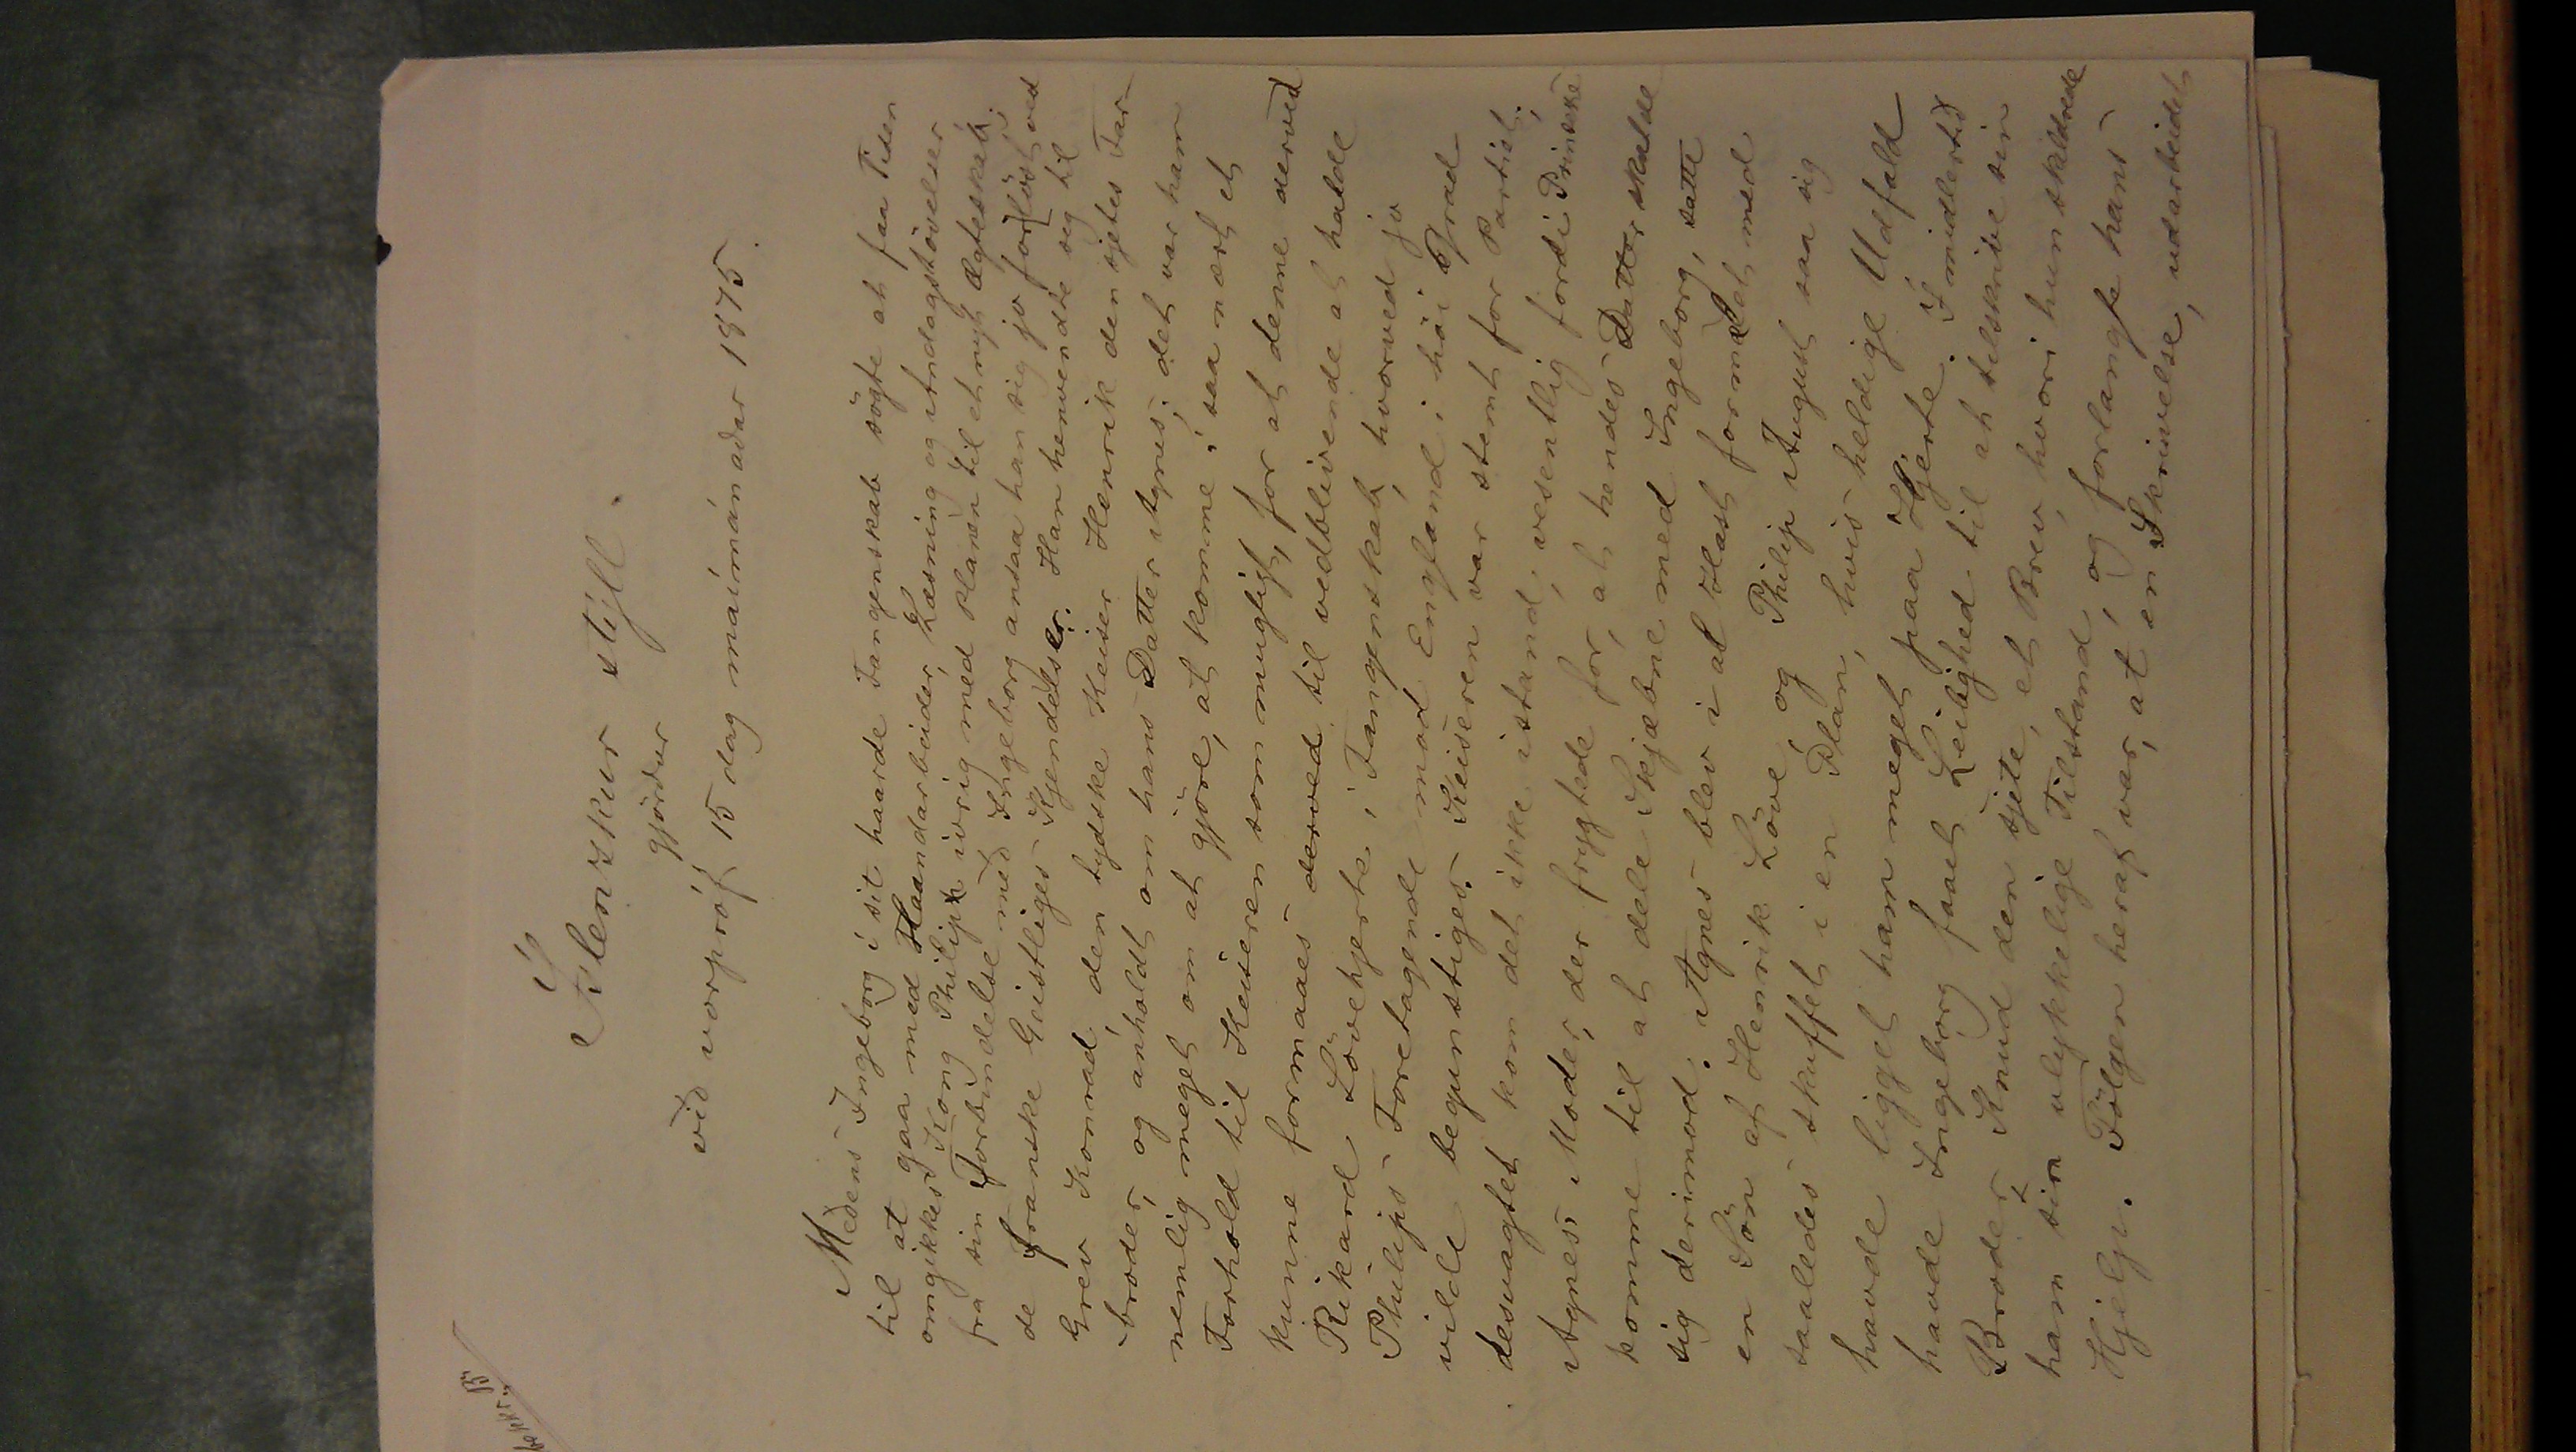 Íslenzkur stíll.
gjörður
við vorpróf 15 dag maímánaðar 1875.
Medens Ingeborg i sit haarde Fangenskab sögte at faa Tiden
til at gaa med Haandarbeider, Læsning og Andagtsövelser
omgikkes Kong Philip ivrig med Planen til et nyt Ægteskab.
fra sin Forbindelse med Ingeborg ansaa han sig jo forlöst ved
de franske Geistliges Kjendelser. Han henvendte sig til
Grev Konrad, den tydske Keiser Henrik den sjettes Far-
broder, og anholdt om hans Datter Agnes; det var ham
nemlig meget om at gjöre, at komme i saa nært et
Forhold til Keiseren som mugligt, for at denne derved
kunne formaaes derved til vedblivende at holde
Rikard Lövehjerte i Fangenskab, hvorved jo
Philips Foretagende mod England i höi Grad
vilde begunstiges. Keiseren var stemt for Partiet;
desuagtet kom det ikke istand, vesentlig fordi Prinsesse
Agnes's Moder, der frygtede for, at hendes Datter skulde
komme til at dele Skjæbne med Ingeborg, satte
sig derimod. Agnes blev i al Hast formælet med
en Sön af Henrik Löve, og Philip August saa sig
saaledes skuffet i en Plan, hvis heldige Udfald
havde ligget ham meget paa Hjerte. Imidlertid
havde Ingeborg faaet Leilighed til at tilskrive sin
Broder, Knud den sjete, et Brev, hvori hun skildrede
ham sin ulykkelige Tilstand, og forlangte hans
Hjelp. Fölgen heraf var, at en Skrivelse, udarbeidet